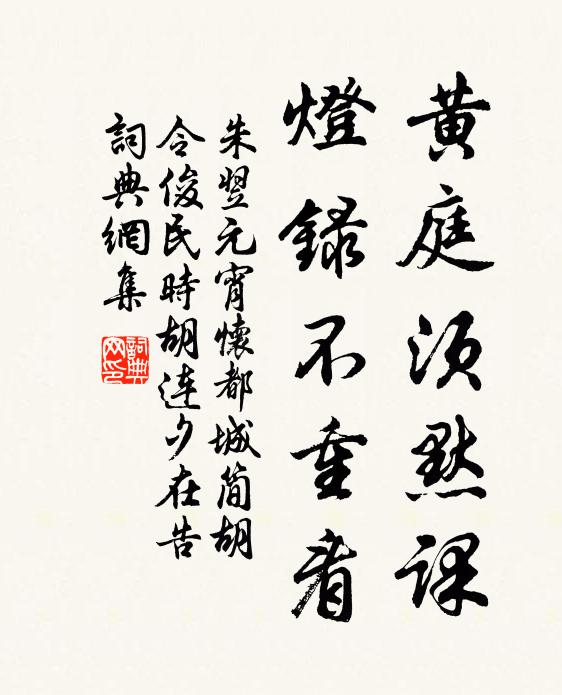 黃庭須默課
燈錄不重看
朱翌元宵懷都城簡胡
令俊民時胡連夕在告
詞典網集
詞典網印